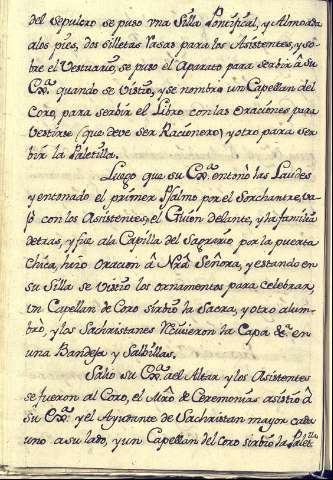 del sepulcro se puso vna Silla Pontifical, y Almoada
a los pies, dos silletas rasas para los Asistentes, y so-
bre el Vestuario, se puso el Aparato para serbir â Su
Exª. quando se vistió, y se nombró un Capellan del
Coro, para serbir el Libro con las Oraciones para
vestirse (que deve ser Racionero) y otro para ser
bir la Paletilla.
Luego que su Exª. entonó las Laudes
y entonado el primer Psalmo por el Sorchantre, va-
jó con los Asistentes, el Guion delante, y la familia
detras, y fue a la Capilla del Sagrario por la puerta
chica, hizo oracion â Nrâ Señora, y estando en
su Silla se vistió los ornamentos para celebrar,
vn Capellan de Coro sirbió la Sacra, y otro alum-
bró, y los Sachristanes recivieron la Capa &ª. en
una Bandeja y Salbillas.
Salió su Exª. a el Altar y los Asistentes
se fueron al Coro, el Mrô de Ceremonias asistió â
su Exª. y el Ayudante de Sachristan mayor cada
uno a su lado, y un Capellan del coro sirbió la Palet.lla